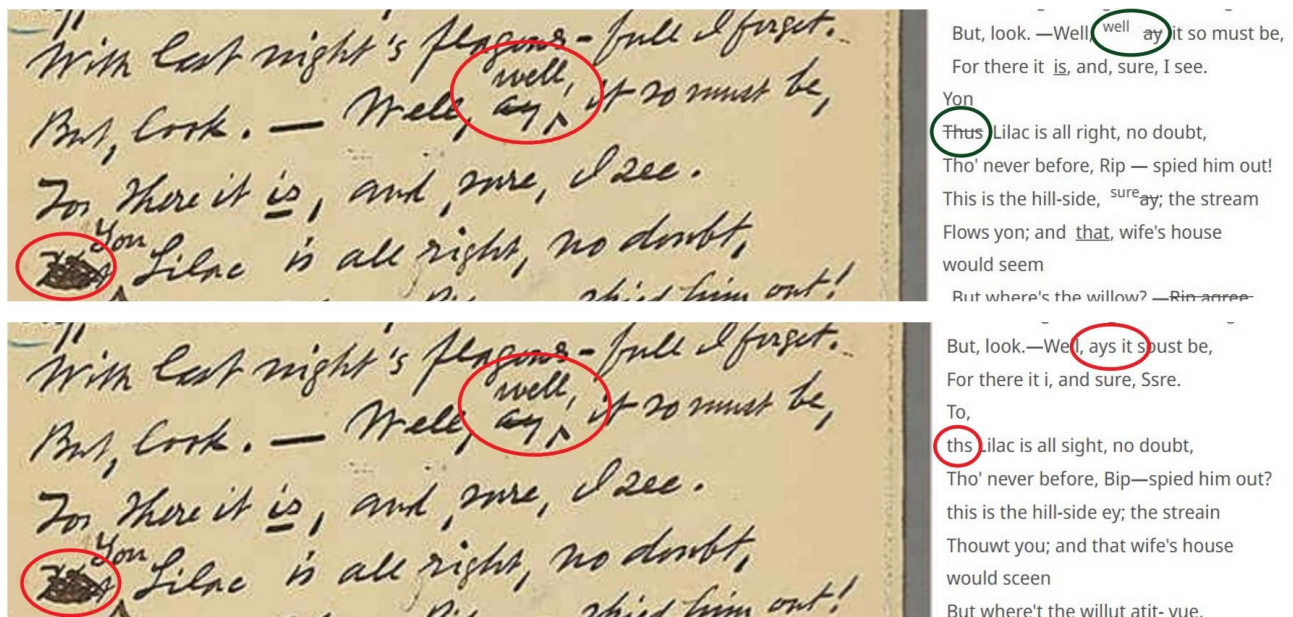 With last night's flagons-full I forget.
well,
But, look. — Well, ~~ay~~ ^ it so must be,
For there it is, and, sure, I see.
Yon
Lilac is all right, no doubt,
spied him out!
But, look. —Well, well ~~ay~~ it so must be,
For there it is, and, sure, I see.
Yon
~~Thus~~ Lilac is all right, no doubt,
Tho' never before, Rip — spied him out!
This is the hill-side, sure ~~ay~~; the stream
Flows yon; and that, wife's house
would seem
But where's the willow? —~~Rip agree~~
With last night's flagons-full I forget.
well,
But, look. — Well, ~~ay~~ ^ it so must be,
For there it is, and, sure, I see.
Yon
Lilac is all right, no doubt,
spied him out!
But, look.—Well, ays it spust be,
For there it i, and sure, Ssre.
To,
ths Lilac is all sight, no doubt,
Tho' never before, Bip—spied him out?
this is the hill-side ey; the streain
Thouwt you; and that wife's house
would sceen
But where't the willut atit- vue.